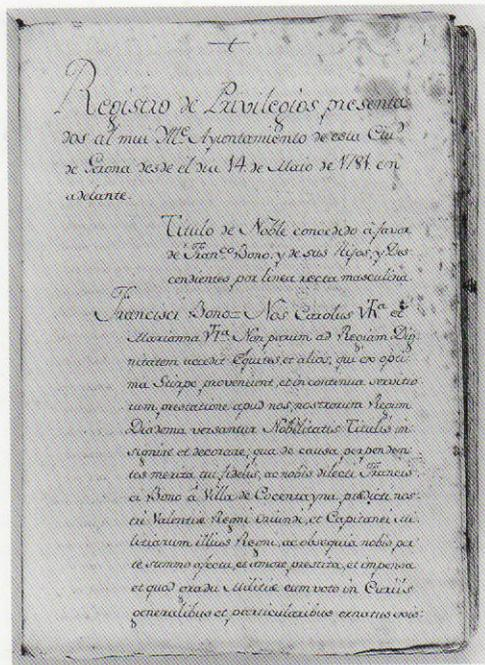 Registro de Privilegios presenta
dos al mui Ille Ayuntamiento de esta Ciud
de Gerona desde el dia 14. de Maio de 1781. en
adelante.
Titulo de Noble concedido à favor
de Franco Bono, y de sus Hijos, y Des
cendientes por linea recta masculina.
Francisci Bono= Nos Carolus et
Marianna Non parum ad Regiam Dig
nitatem accedit Equites, et alios, qui ex opti
ma Stirpe proveniunt, et in continua servitio
rum prestatione apud nos, nostrorum Regum
Diadema versantur Nobilitatis Titulis in
signire et decorare, qua de causa perpenden
tes merita tui fidelis, ac nobis dilecti Francis
ci Bono à Villa de Cocentayna, prædicti nos
tri Valentiæ Regni oriundi, et Capitanei Mi
litiarum illius Regni, ac obsequia nobis per
te summo afectu, et amore prestita, et impensa
et quod gradu Militiæ cum voto in Curiis
generalibus et particularibus ornatus